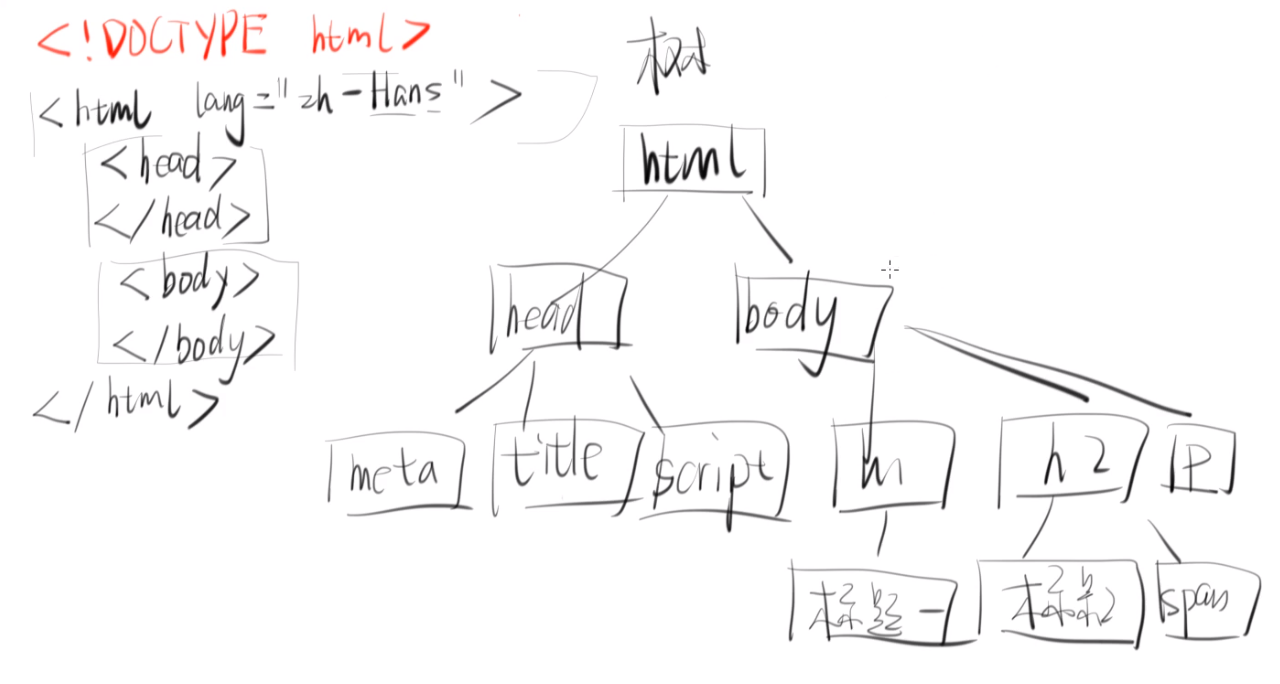 <!DOCTYPE html>
<html lang="zh-Hans">
<head>
</head>
<body>
</body>
</html>
树
html
head
body
meta
title
script
h1
h2
P
标题一
标题2
span